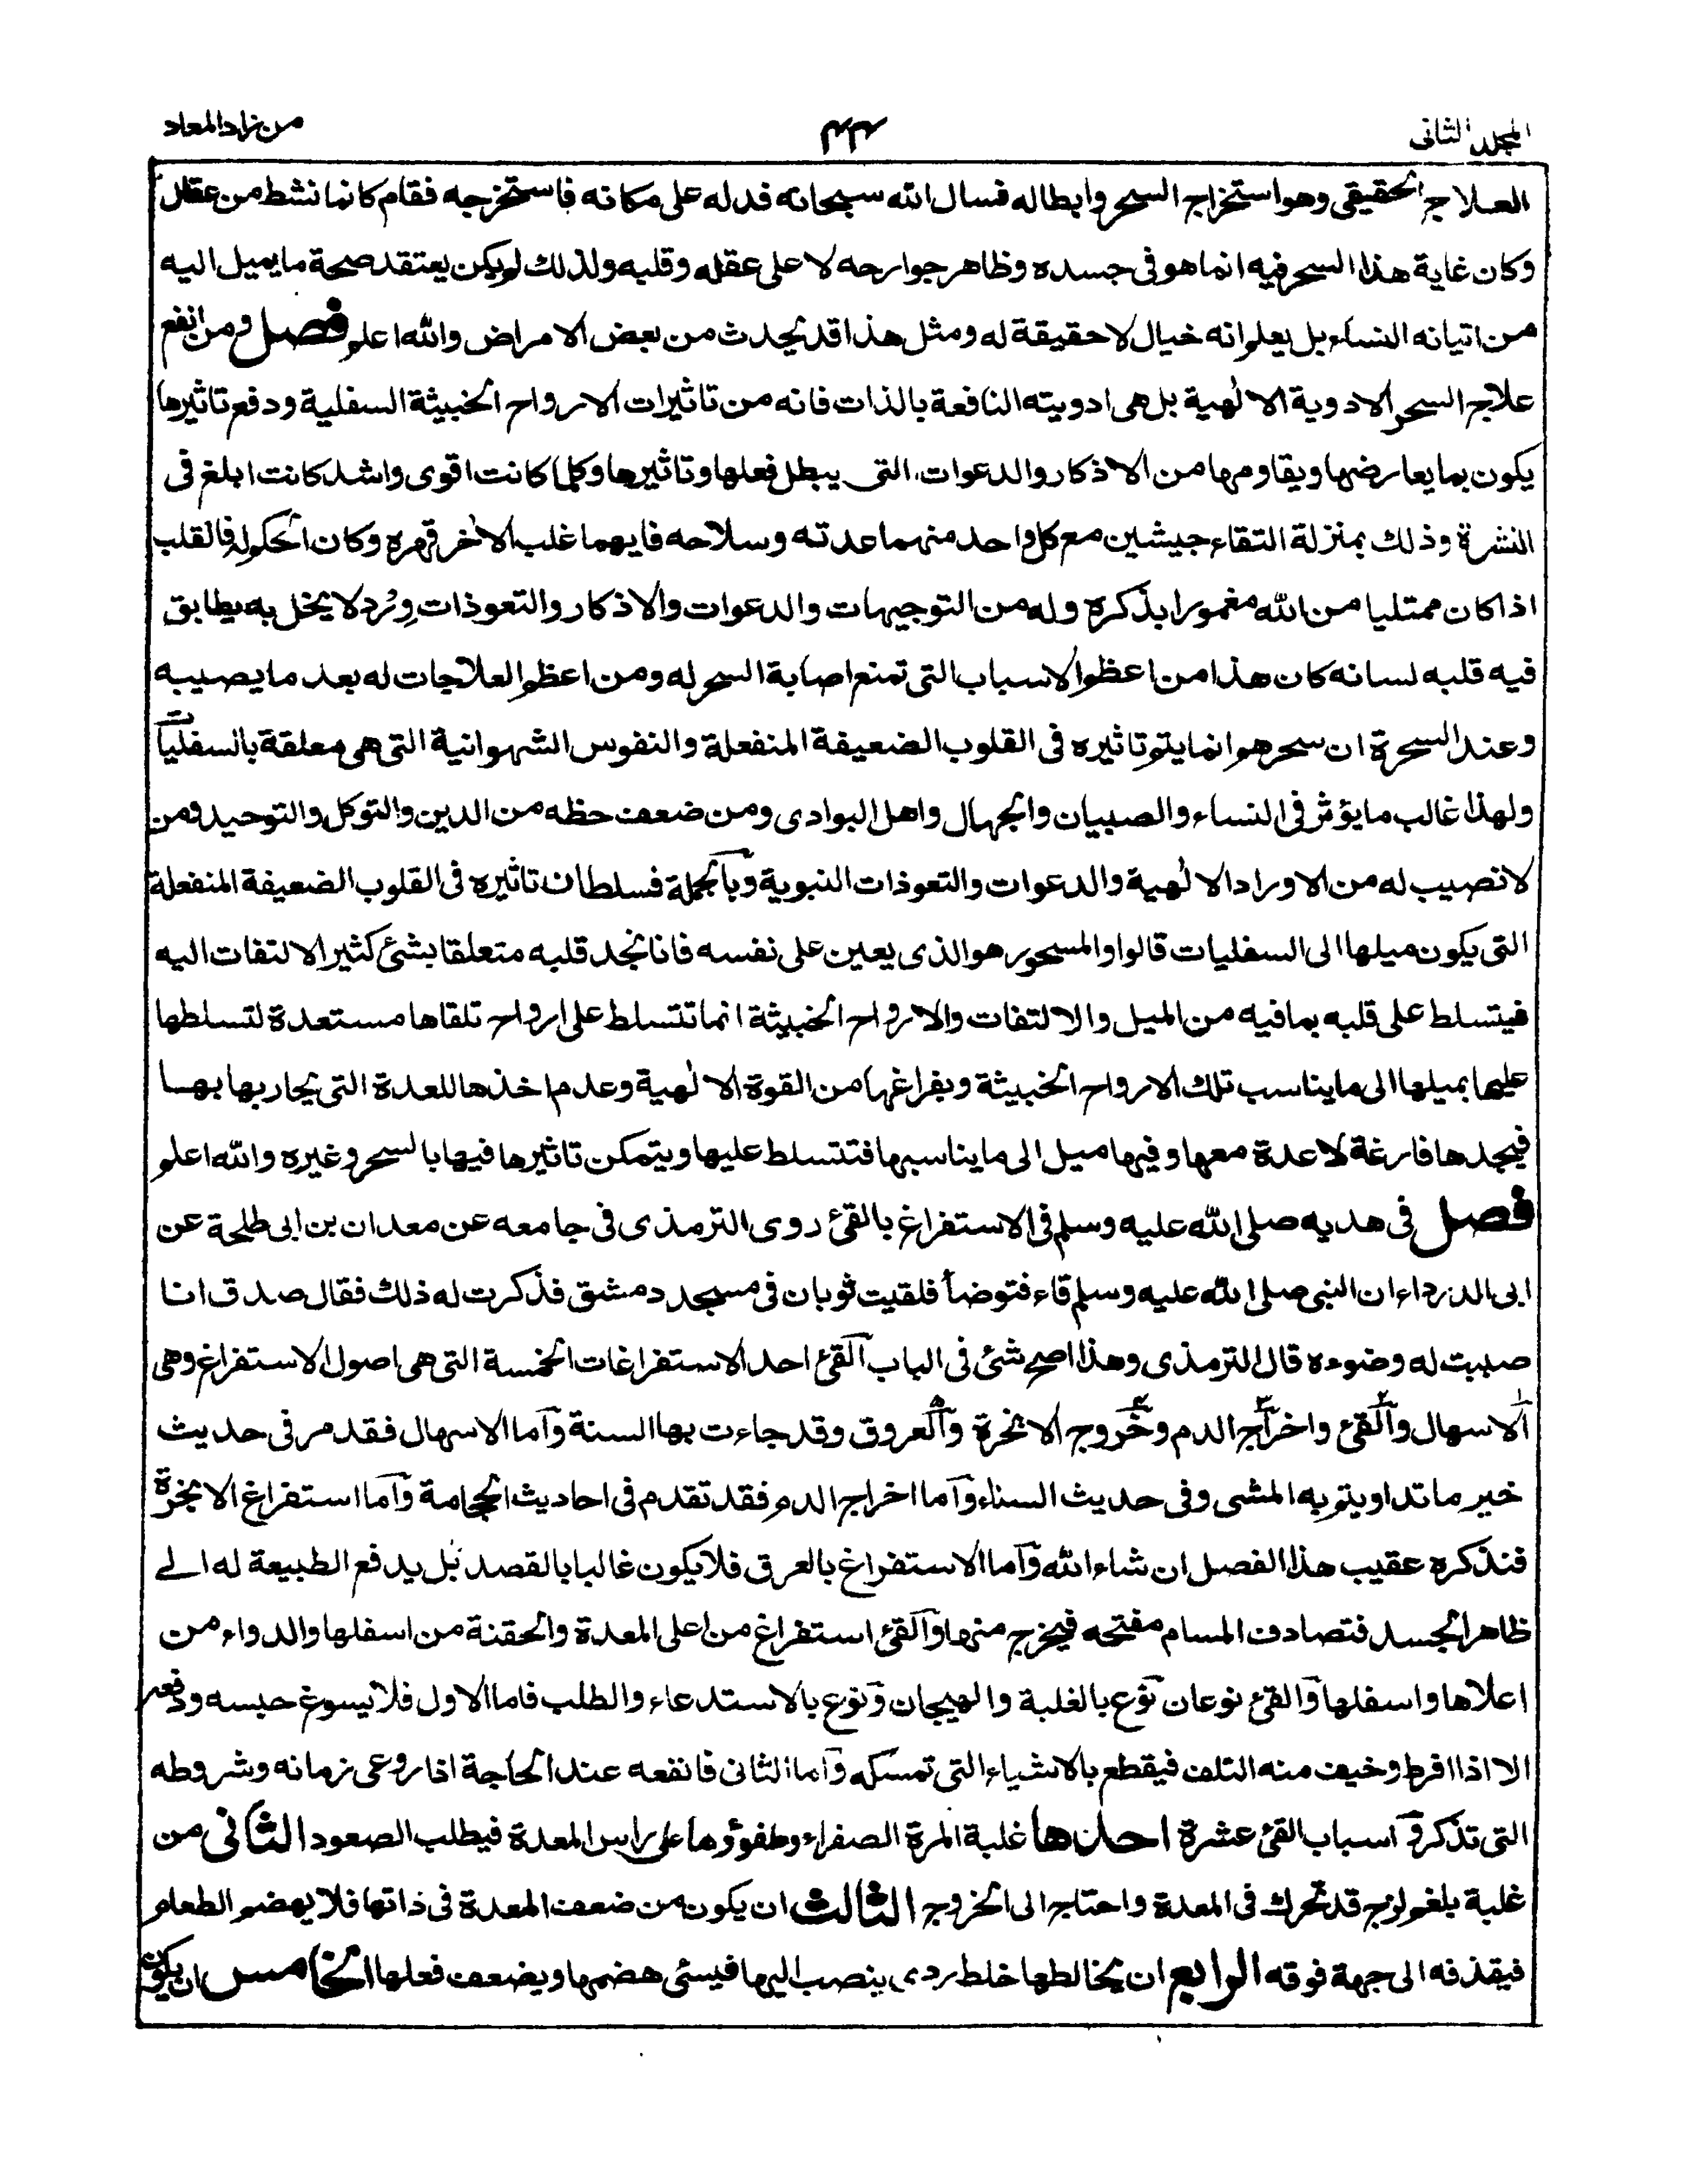 المجلد الثانى
٤٤
من زاد المعاد
العلاج الحقيقى وهو استخراج السحر وابطاله فسال الله سبحانه فدله على مكانه فاستخرجه فقام كانما نشط من عقال
وكان غاية هذا السحر فيه انما هو فى جسده وظاهر جوارحه لا على عقله وقلبه ولذلك لم يكن يعتقد صحة ما يميل اليه
من اتيانه النساء بل يعلم انه خيال لا حقيقة له ومثل هذا قد يحدث من بعض الامراض والله اعلم فصل ومن انفع
علاج السحر الادوية الالٰهية بل هى ادويته النافعة بالذات فانه من تاثيرات الارواح الخبيثة السفلية ودفع تاثيرها
يكون بما يعارضها ويقاومها من الاذكار والدعوات التى يبطل فعلها وتاثيرها وكلما كانت اقوى واشد كانت ابلغ فى
النشرة وذلك بمنزلة التقاء جيشين مع كل واحد منهما عدته وسلاحه فايهما غلب الاٰخر قهره وكان الحكم له فالقلب
اذا كان ممتليا من الله مغمورا بذكره وله من التوجيهات والدعوات والاذكار والتعوذات وِرْد لا يخل به يطابق
فيه قلبه لسانه كان هذا من اعظم الاسباب التى تمنع اصابة السحر له ومن اعظم العلاجات له بعد ما يصيبه
وعند السحرة ان سحرهم انما يتم تاثيره فى القلوب الضعيفة المنفعلة والنفوس الشهوانية التى هى معلقة بالسفليات
ولهذا غالب ما يؤثر فى النساء والصبيان والجهال واهل البوادى ومن ضعف حظه من الدين والتوكل والتوحيد ومن
لا نصيب له من الاوراد الالٰهية والدعوات والتعوذات النبوية وبالجملة فسلطان تاثيره فى القلوب الضعيفة المنفعلة
التى يكون ميلها الى السفليات قالوا والمسحور هو الذى يعين على نفسه فانا نجد قلبه متعلقا بشئ كثير الالتفات اليه
فيتسلط على قلبه بما فيه من الميل والالتفات والارواح الخبيثة انما تتسلط على ارواح تلقاها مستعدة لتسلطها
عليها بميلها الى ما يناسب تلك الارواح الخبيثة وبفراغها من القوة الالٰهية وعدم اخذها للعدة التى يحاربها بها
فيجدها فارغة لا عدة معها وفيها ميل الى ما يناسبها فتتسلط عليها ويتمكن تاثيرها فيها بالسحر وغيره والله اعلم
فصل فى هديه صلى الله عليه وسلم فى الاستفراغ بالقئ روى الترمذى فى جامعه عن معدان بن ابى طلحة عن
ابى الدرداء ان النبى صلى الله عليه وسلم قاء فتوضأ فلقيت ثوبان فى مسجد دمشق فذكرت له ذلك فقال صدق انا
صببت له وضوءه قال الترمذى وهذا اصح شئ فى الباب القئ احد الاستفراغات الخمسة التى هى اصول الاستفراغ وهى
الاسهال والقئ واخراج الدم وخروج الابخرة والعروق وقد جاءت بها السنة وآما الاسهال فقد مر فى حديث
خير ما تداويتم به المشى وفى حديث السناء وآما اخراج الدم فقد تقدم فى احاديث الحجامة وآما استفراغ الابخرة
فنذكره عقيب هذا الفصل ان شاء الله وآما الاستفراغ بالعرق فلا يكون غالبا بالقصد بل يدفع الطبيعة له الے
ظاهر الجسد فتصادف المسام مفتحه فيخرج منها والقئ استفراغ من اعلى المعدة والحقنة من اسفلها والدواء من
اعلاها واسفلها والقئ نوعان نوع بالغلبة والهيجان ونوع بالاستدعاء والطلب فاما الاول فلا يسوغ حبسه ودفعه
الا اذا افرط وخيف منه التلف فيقطع بالاشياء التى تمسكه وآما الثانى فانفعه عند الحاجة اذا روعى زمانه وشروطه
التى تذكر و اسباب القئ عشرة احدها غلبة المرة الصفراء وطفوؤها على راس المعدة فيطلب الصعود الثانى من
غلبة بلغم لزج قد تحرك فى المعدة واحتاج الى الخروج الثالث ان يكون من ضعف المعدة فى ذاتها فلا يهضم الطعام
فيقذفه الى جهة فوقه الرابع ان يخالطها خلط ردى ينصب اليها فيسئ هضمها ويضعف فعلها الخامس ان يكون